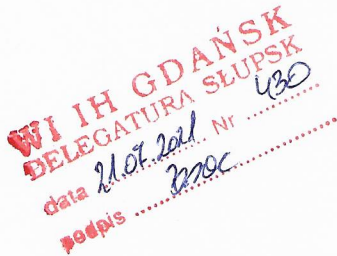 WI IH GDAŃSK
DELEGATURA SŁUPSK
data 21.07.2021 Nr 430
podpis